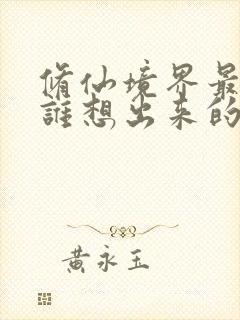 脩仙境界最
誰想出来的
黄永玉